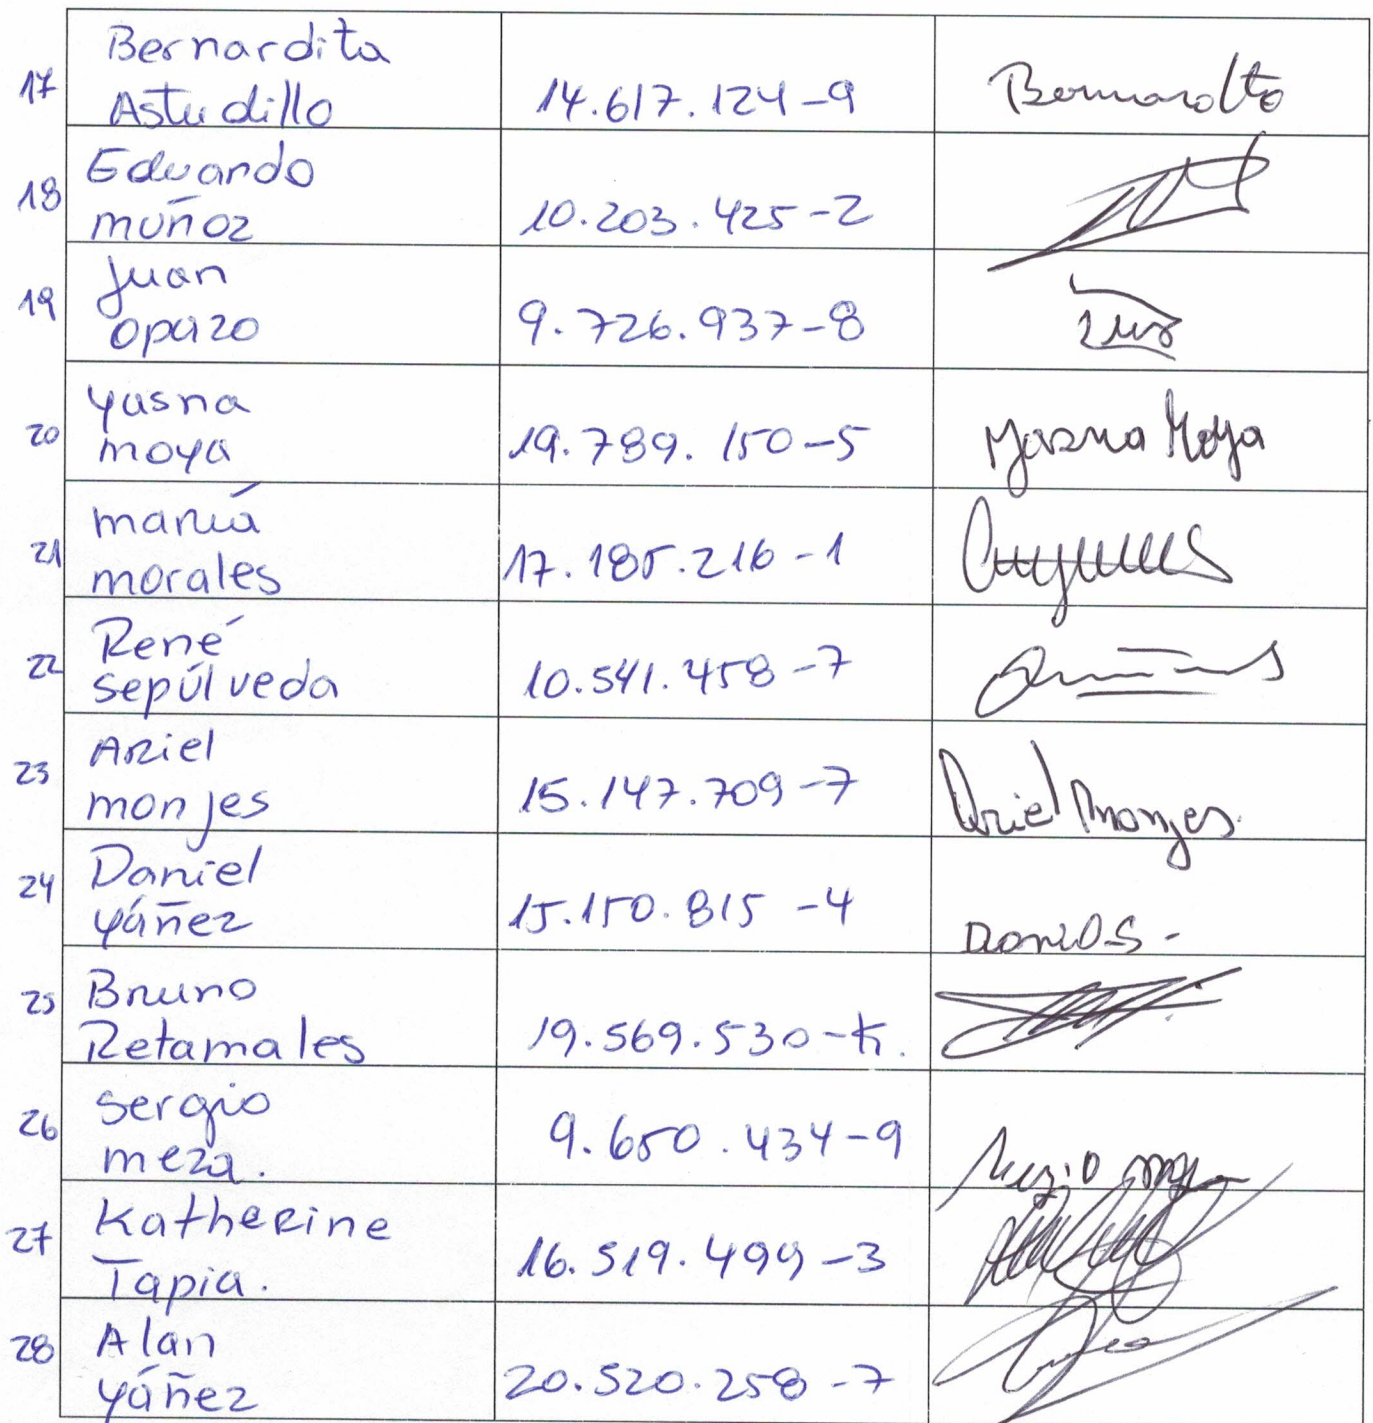 Bernardita
17 Astudillo 14.617.124-9 Bernardita
Eduardo
18 muñoz 10.203.425-2
Juan
19 opazo 9.726.937-8
Yasna
20 moya 19.789.150-5 Yasna Moya
maría
21 morales 17.185.216-1
René
22 sepúlveda 10.541.458-7
Ariel
23 monjes 15.147.709-7 Ariel Monjes.
Daniel
24 yáñez 15.150.815-4
Bruno
25 Retamales 19.569.530-K.
Sergio
26 meza. 9.650.434-9
Katherine
27 Tapia. 16.519.499-3
Alan
28 yáñez 20.520.258-7